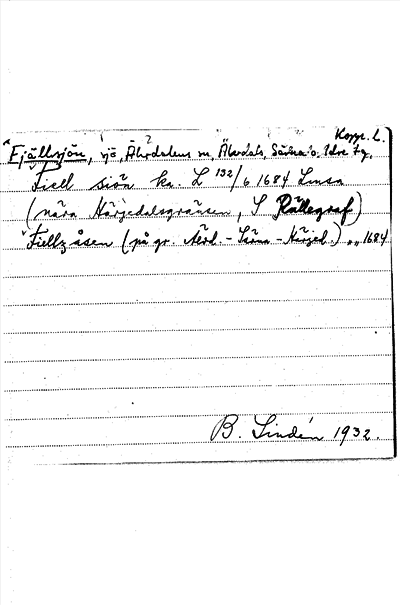 Kopp. L.
*Fjällsjön, sjö, Älvdalens sn, Älvdals, Särna o. Idre tg.
Fiell siön ka. L 132/6 1684 Lmsa
(nära Härjedalsgränsen, S Rällegraf)
*Fiellz åsen (på gr. Älvd. - Särna - Härjed.) „ „ 1684
B. Lindén 1932.